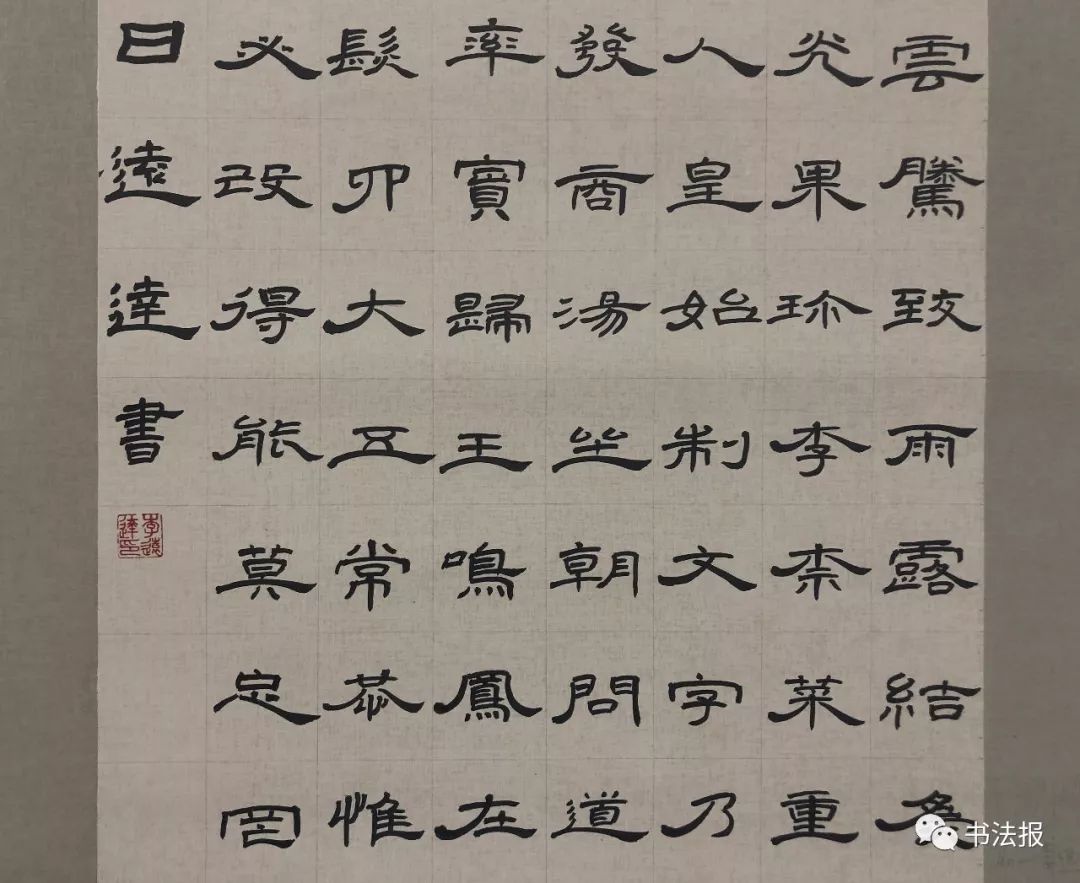 雲騰致雨露結為
光果珎李柰菜重
人皇始制文字乃
發商湯坐朝問道
率賓歸王鳴鳳在
髮四大五常恭惟
必改得能莫忘罔
日遠達書
李遠達印
书法报